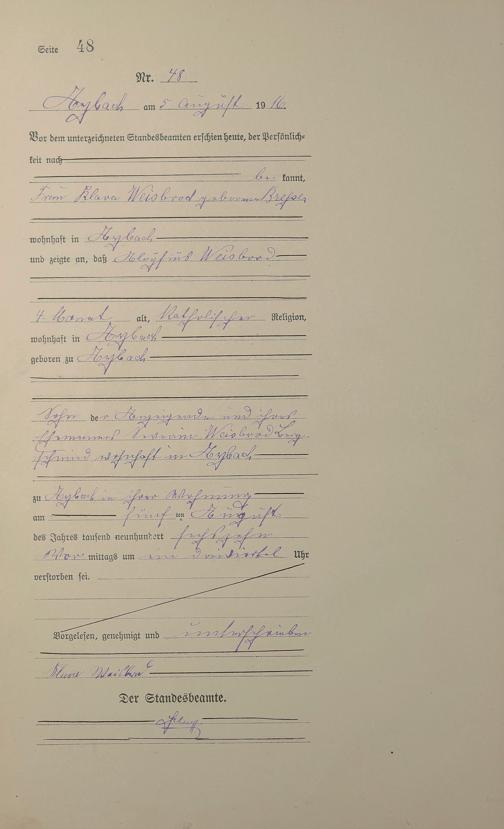 Seite 48
Nr. 48
am 5 August 1916.
Vor dem unterzeichneten Standesbeamten erschien heute, der Persönlich-
keit nach
be kannt,
Frau Klara Weisbrod geborene
wohnhaft in
und zeigte an, daß Aloysius Weisbrod
4 Monat alt, Katholischer Religion,
wohnhaft in
geboren zu
Sohn der Anzeigende und ihres
Ehemannes Severin Weisbrod Berg-
schmied wohnhaft in
zu in ihrer Wohnung
am fünf ten August
des Jahres tausend neunhundert sechszehn
Vor mittags um ein dreiviertel Uhr
verstorben sei.
Vorgelesen, genehmigt und unterschrieben
Der Standesbeamte.